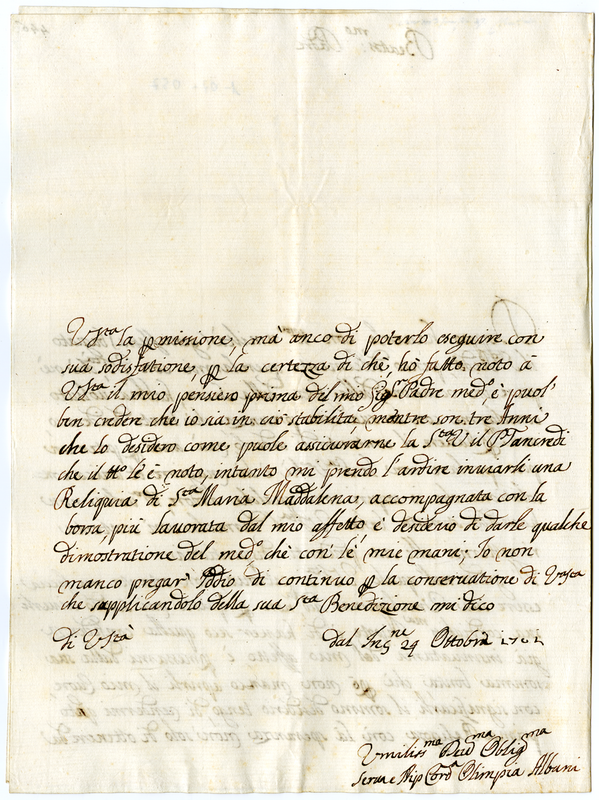 Vsta la pmissione, mà anco di poterlo eseguire con
sua sodisfatione, p la certezza di chè, hò fatto noto à
Vsta il mio pensiero prima del mio Sigr Padre medo, è puol'
ben credere che io sia in ciò stabilita, mentre son tre Anni
che lo desidero come puole assicurarne la Sta V il P Tancredi
che il tto le è noto, intanto mi prendo l'ardire inviarli una
Reliquia di Sta Maria Maddalena, accompagnata con la
borsa, più lavorata dal mio affetto, e desiderio di darle qualche
dimostratione del medo, chè con le mie mani; Io non
manco pregar Iddio di continuo p la conservatione di Vsta
che supplicandolo della sua Sta Benedizione mi dico
di Vstà dal 24 Ottobre
Umilissma Devma Obligma
Serva e Nip Olimpia Albani